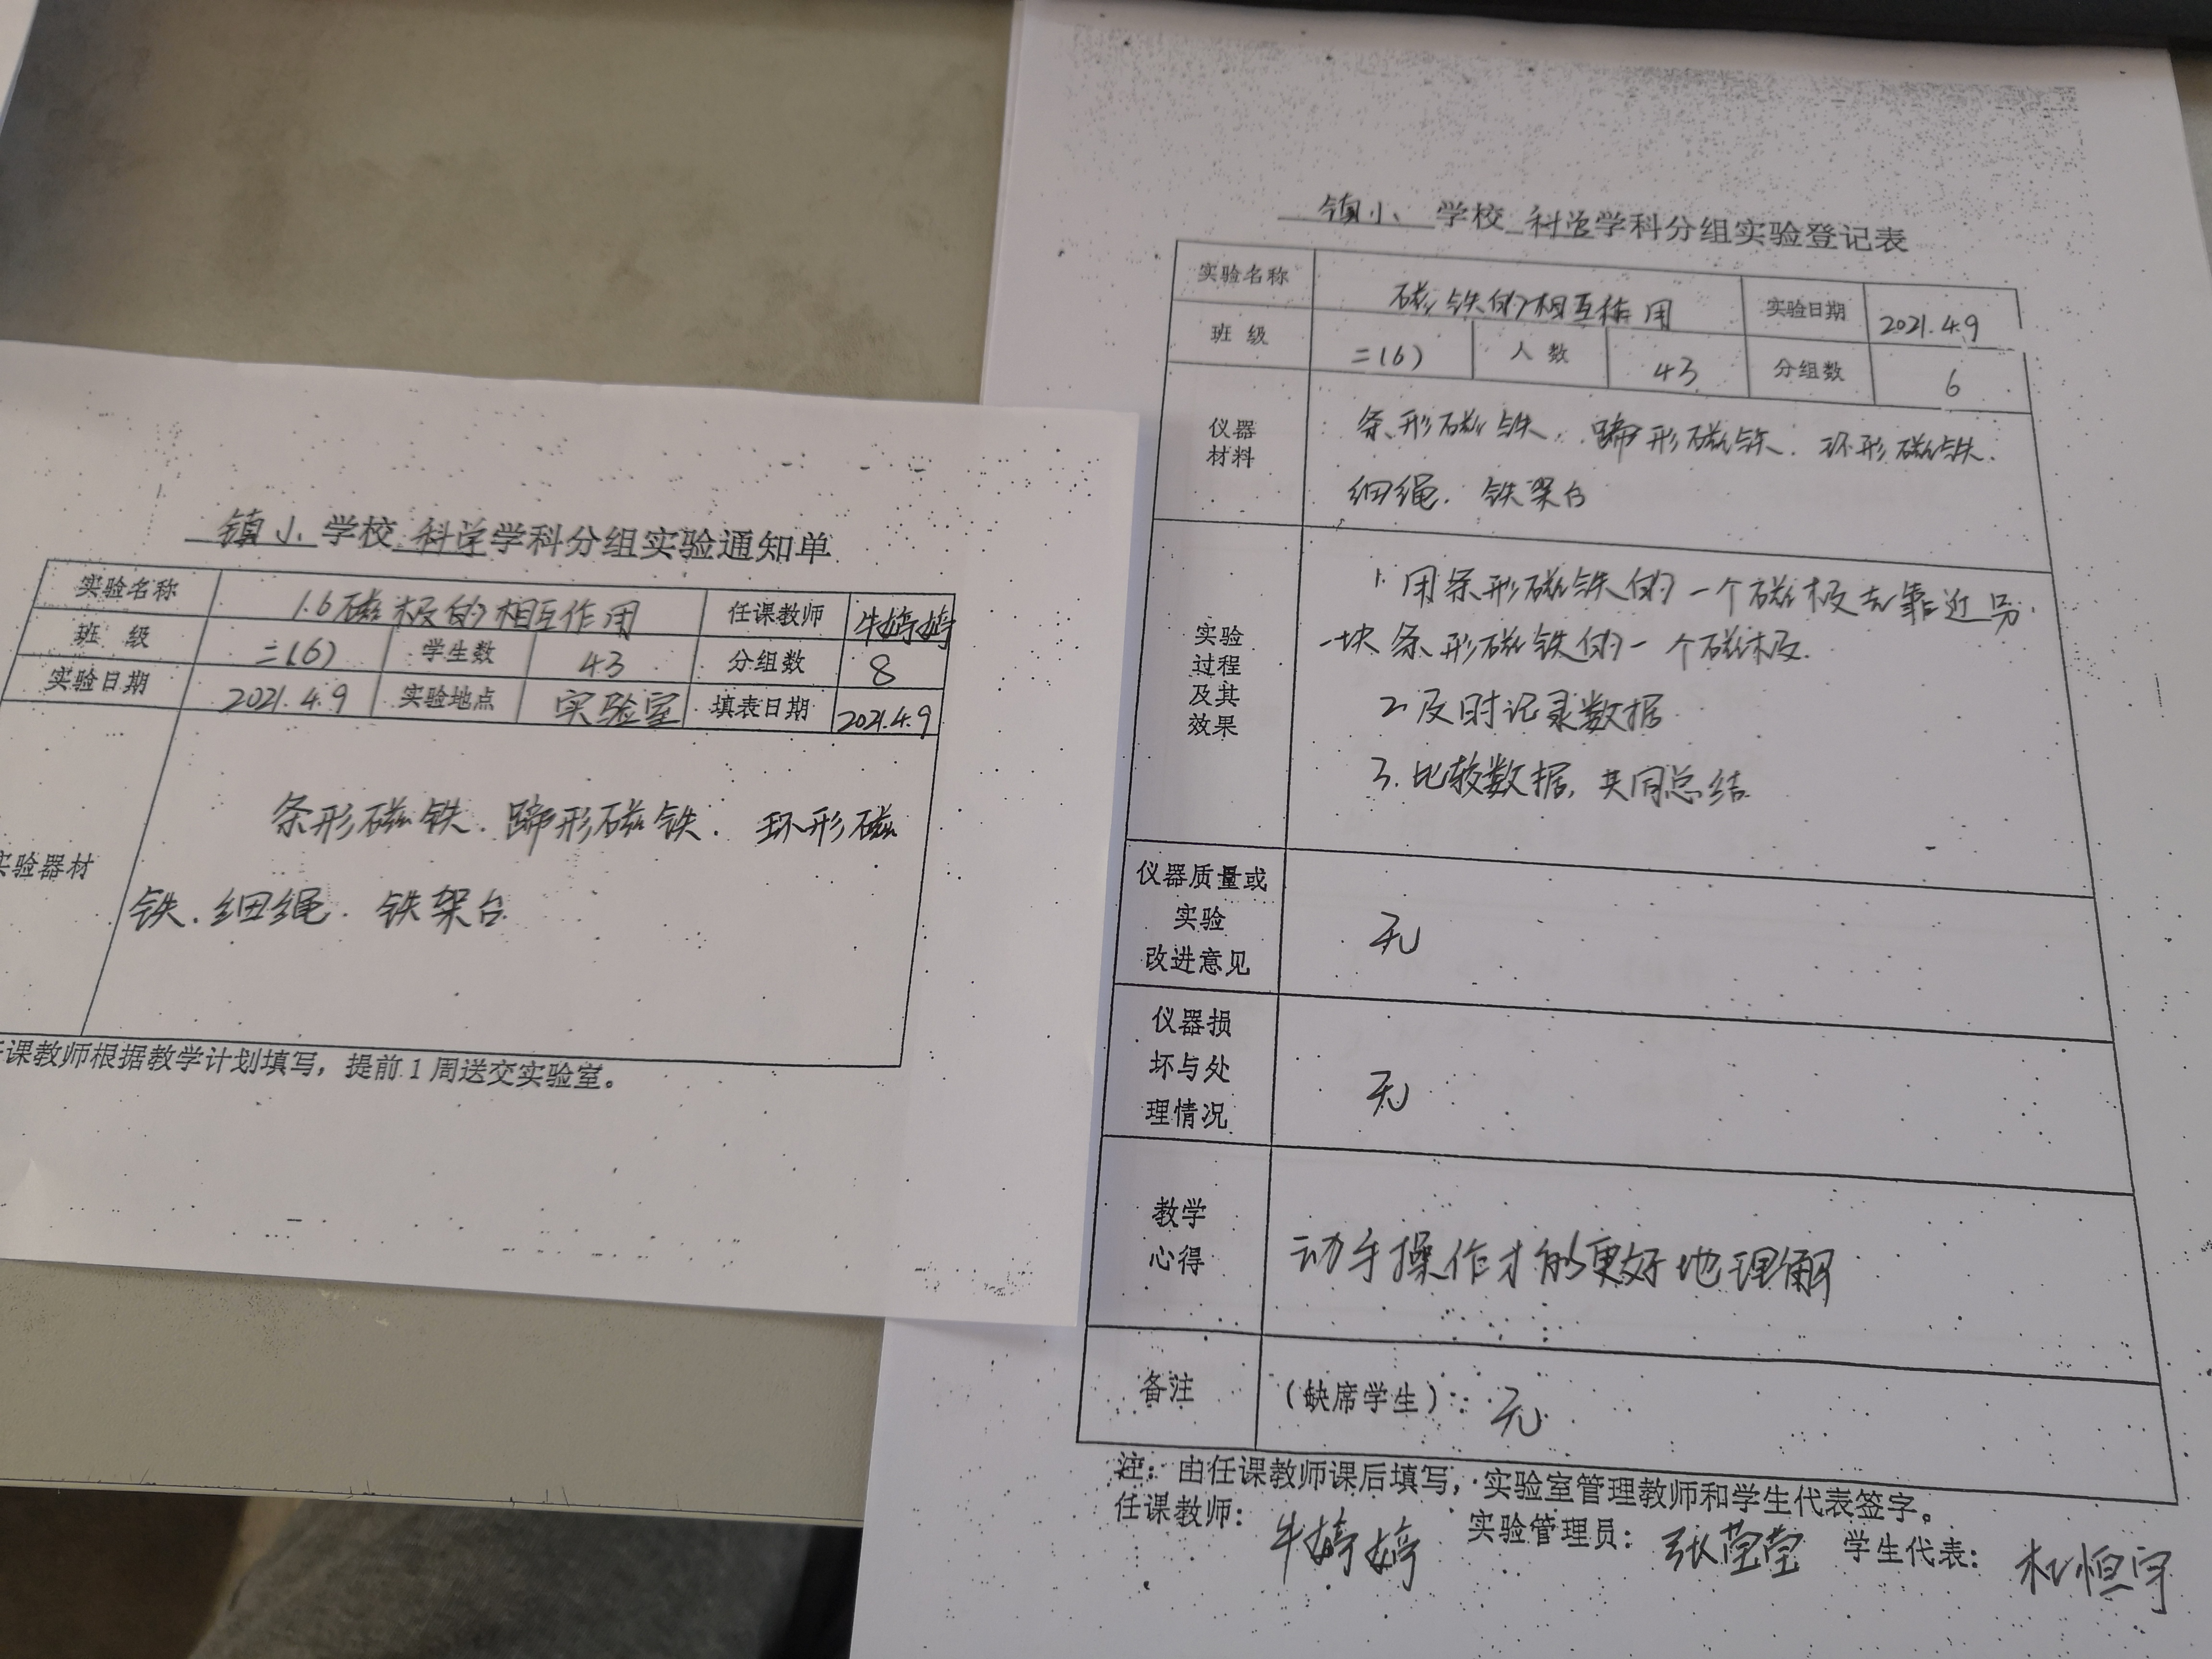 镇小 学校 科学学科分组实验通知单
实验名称 1.6磁极的相互作用 任课教师 牛婷婷
班 级 二(6) 学生数 43 分组数 8
实验日期 2021.4.9 实验地点 实验室 填表日期 2021.4.9
实验器材
条形磁铁.蹄形磁铁.环形磁
铁.细绳.铁架台
课教师根据教学计划填写，提前1周送交实验室。
镇小 学校 科学学科分组实验登记表
实验名称 磁铁的相互作用 实验日期 2021.4.9
班 级 二(6) 人 数 43 分组数 6
仪器
材料
条形磁铁.蹄形磁铁.环形磁铁.
细绳.铁架台
实验
过程
及其
效果
1.用条形磁铁的一个磁极去靠近另
一块条形磁铁的一个磁极.
2.及时记录数据
3.比较数据,共同总结
仪器质量或
实验
改进意见
无
仪器损
坏与处
理情况
无
教学
心得
动手操作才能更好地理解
备注 (缺席学生): 无
注：由任课教师课后填写，实验室管理教师和学生代表签字。
任课教师： 牛婷婷 实验管理员： 张莹莹 学生代表： 恒宇